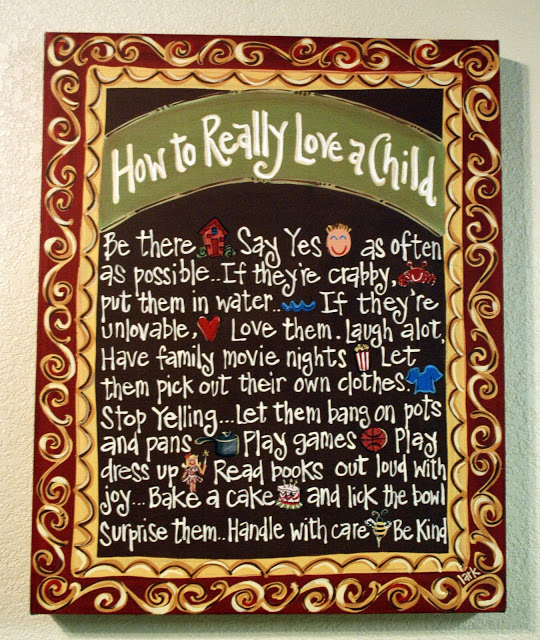 How to Really Love a Child
Be there Say Yes as often
as possible..If they're crabby,
put them in water.. If they're
unlovable, Love them. Laugh alot,
Have family movie nights Let
them pick out their own clothes.
Stop Yelling...Let them bang on pots
and pans Play games Play
dress up Read books out loud with
joy...Bake a cake and lick the bowl
Surprise them..Handle with care Be Kind
lark